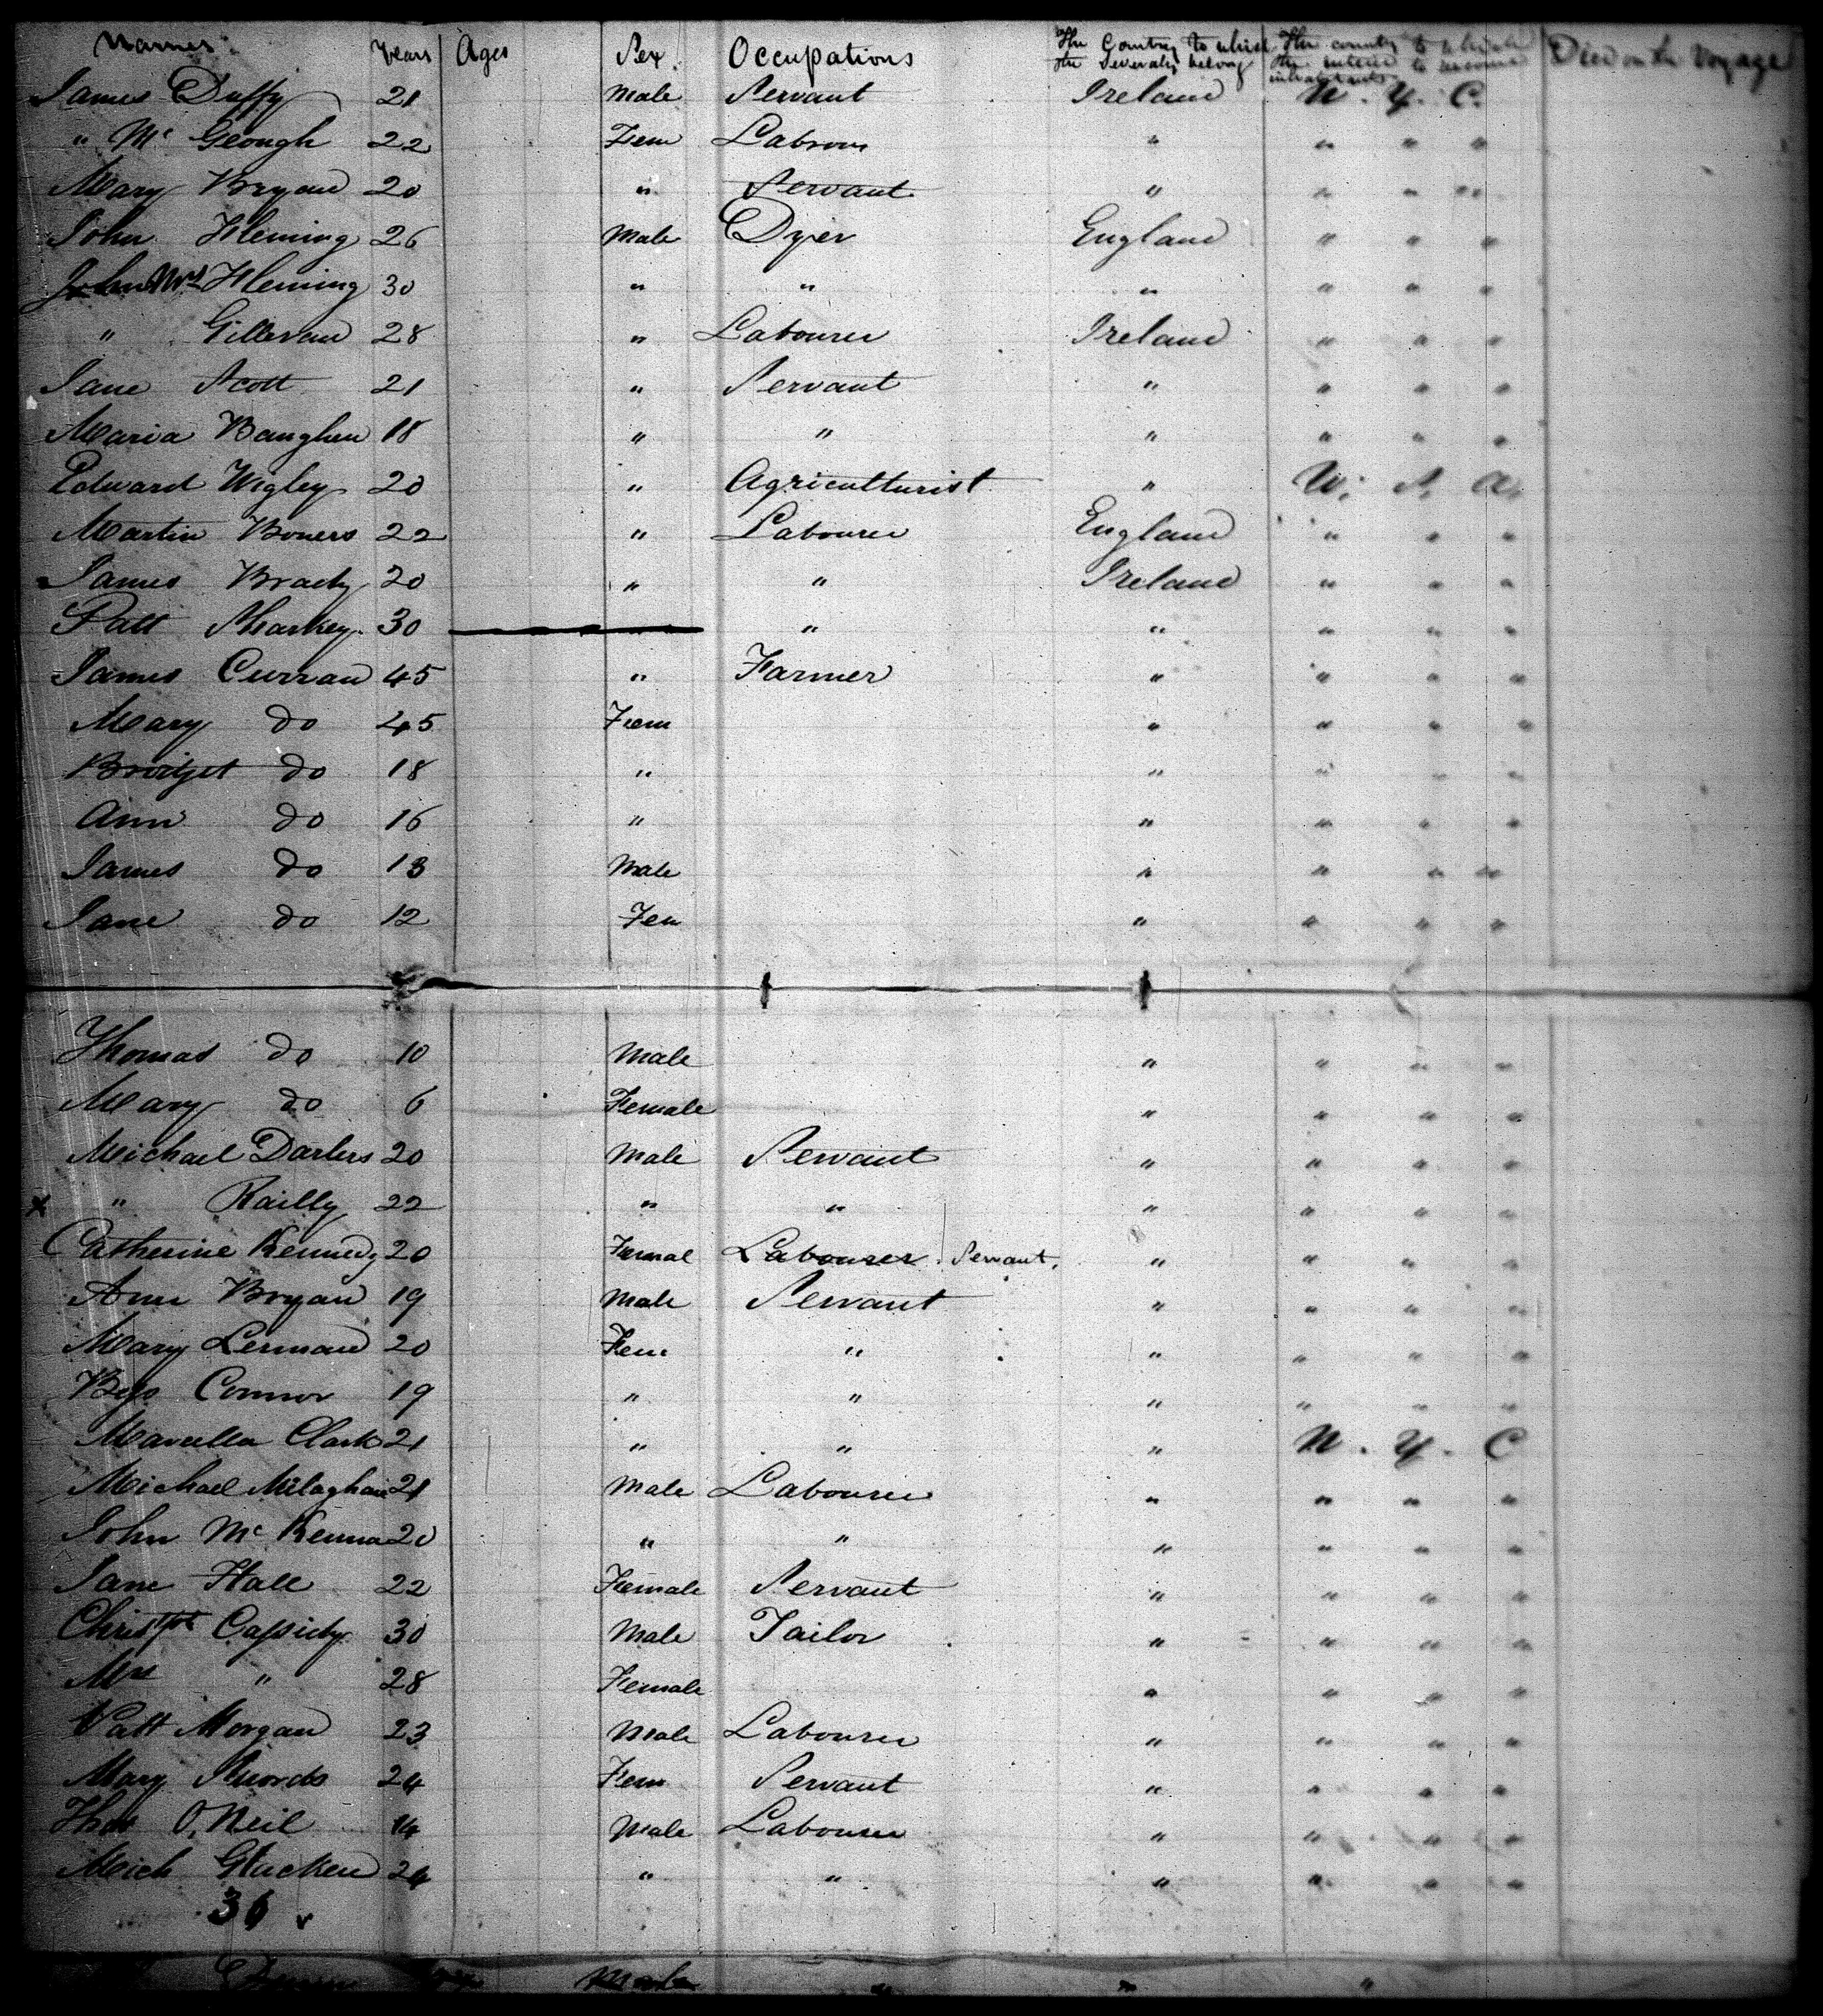 Names Years Ages Sex Occupations The Country to which the Severaly belong The country to which the intend to become inhabitants Died on the Voyage
James Duffy 21 Male Servant Ireland N. Y. C.
" Mc Geough 22 Fem " " " "
Mary Bryan 20 " Servant " " " "
John Fleming 26 Male Dyer England " " "
John Mrs Fleming 30 " " " " " "
" Gilleran 28 " Labourer Ireland " " "
Jane Scott 21 " Servant " " " "
Maria Banghen 18 " " " " " "
Edward Wigley 20 " Agriculturist " U. S. A.
Martin Boners 22 " Labourer England " " "
James Brady 20 " " Ireland " " "
Patt Sharkey 30 " " " " "
James Curran 45 " Farmer " " " "
Mary do 45 Fem " " " "
Bridget do 18 " " " " "
Ann do 16 " " " " "
James do 13 Male " " " "
Jane do 12 Fem " " " "
Thomas do 10 Male " " " "
Mary do 6 Female " " " "
Michael Darlers 20 Male Servant " " " "
x " Railly 22 " " " " " "
Catherine Kennedy 20 Femal Labourer Servant. " " " "
Ann Bryan 19 Male Servant " " " "
Mary Lermans 20 Fem " " " " "
Bess Connor 19 " " " " " "
Marcella Clark 21 " " " N. Y. C
Michael Milaghan 21 Male Labourer " " " "
John Mc Kenna 20 " " " " " "
Jane Hall 22 Female Servant " " " "
Christph Cassidy 30 Male Tailor " " " "
Mrs " 28 Female " " " "
Patt Morgan 23 Male Labourer " " " "
Mary Swords 24 Fem Servant " " " "
Thos O'Neil 14 Male Labourer " " " "
Mich Glucken 24 " " " " " "
36
Male " " "